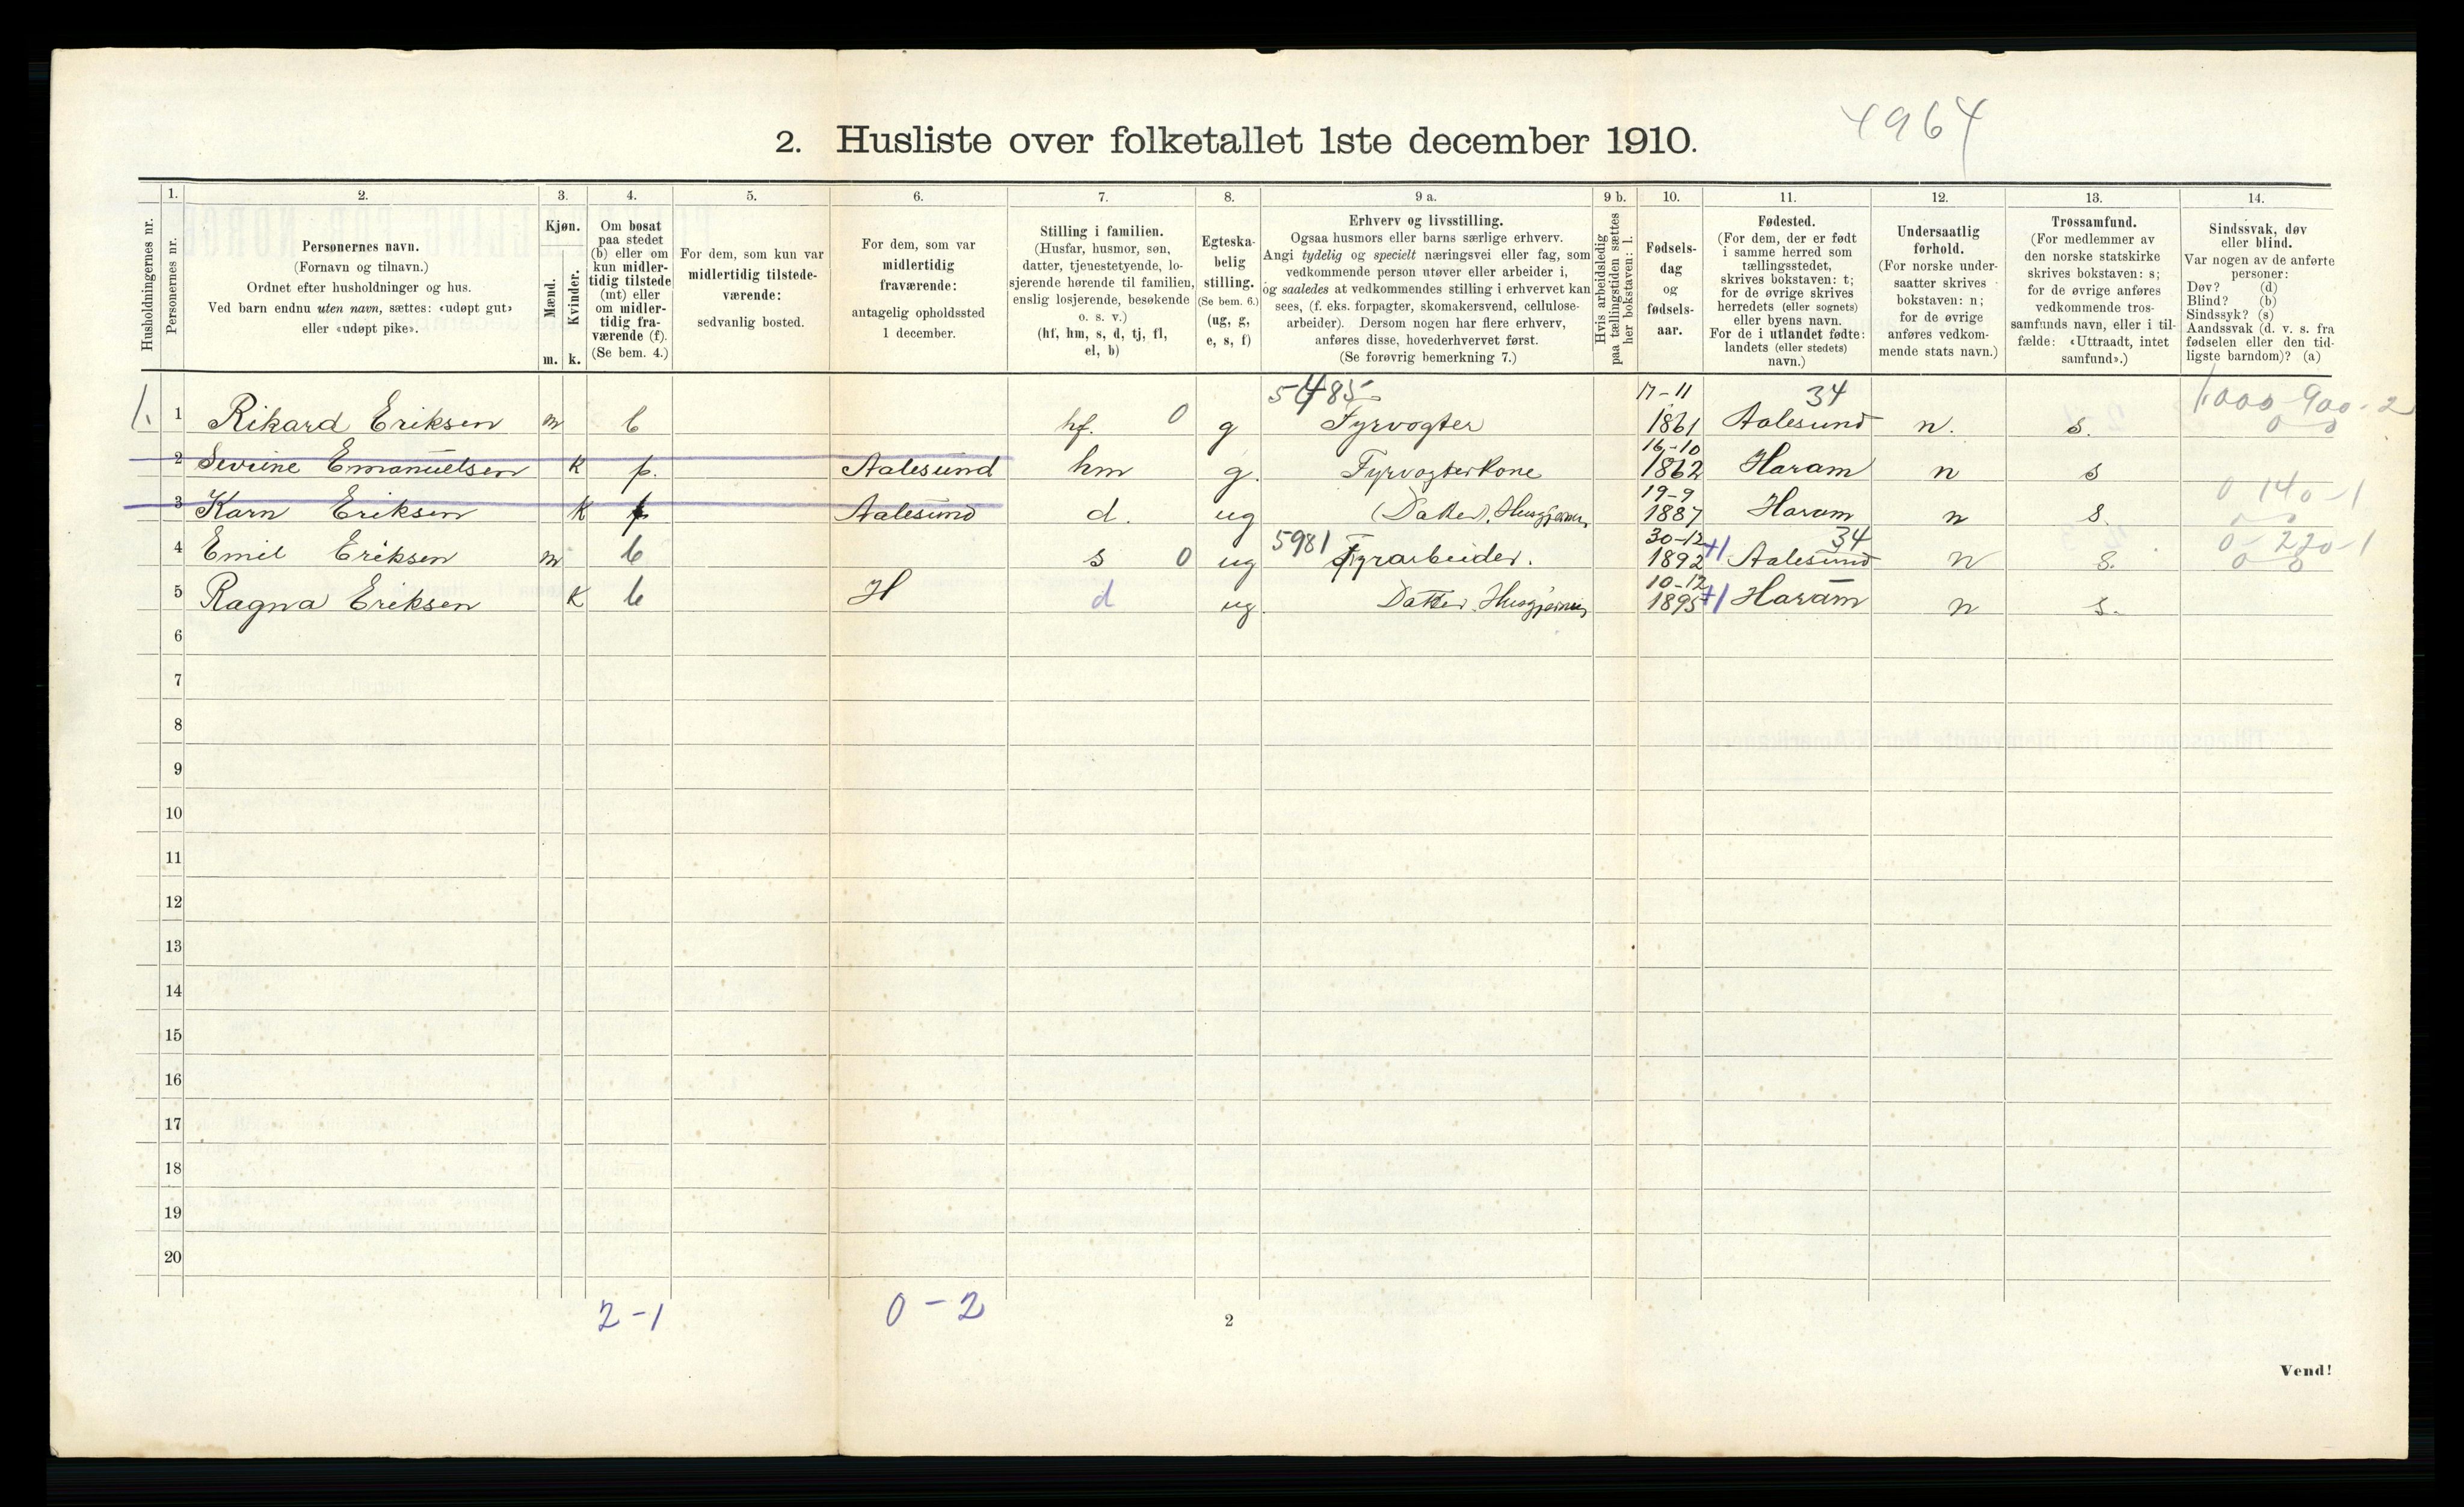 4964
2. Husliste over folketallet 1ste december 1910.
1. 2. 3. 4. 5. 6. 7. 8. 9 a. 9 b. 10. 11. 12. 13. 14.
Husholdningernes nr.
Personernes nr.
Personernes navn.
(Fornavn og tilnavn.)
Ordnet efter husholdninger og hus.
Ved barn endnu uten navn, sættes: «udøpt gut»
eller «udøpt pike».
Kjøn.
Mænd.
Kvinder.
m. k.
Om bosat
paa stedet
(b) eller om
kun midler-
tidig tilstede
(mt) eller
om midler-
tidig fra-
værende (f).
(Se bem. 4.)
For dem, som kun var
midlertidig tilstede-
værende:
sedvanlig bosted.
For dem, som var
midlertidig
fraværende:
antagelig opholdssted
1 december.
Stilling i familien.
(Husfar, husmor, søn,
datter, tjenestetyende, lo-
sjerende hørende til familien,
enslig losjerende, besøkende
o. s. v.)
(hf, hm, s, d, tj, fl,
el, b)
Egteska-
belig
stilling.
(Se bem. 6.)
(ug, g,
e, s, f)
Erhverv og livsstilling.
Ogsaa husmors eller barns særlige erhverv.
Angi tydelig og specielt næringsvei eller fag, som
vedkommende person utøver eller arbeider i,
og saaledes at vedkommendes stilling i erhvervet kan
sees, (f. eks. forpagter, skomakersvend, cellulose-
arbeider). Dersom nogen har flere erhverv,
anføres disse, hovederhvervet først.
(Se forøvrig bemerkning 7.)
Hvis arbeidsledig
paa tællingstiden sættes
her bokstaven: l.
Fødsels-
dag
og
fødsels-
aar.
Fødested.
(For dem, der er født
i samme herred som
tællingsstedet,
skrives bokstaven: t;
for de øvrige skrives
herredets (eller sognets)
eller byens navn.
For de i utlandet fødte:
landets (eller stedets)
navn.)
Undersaatlig
forhold.
(For norske under-
saatter skrives
bokstaven: n;
for de øvrige
anføres vedkom-
mende stats navn.)
Trossamfund.
(For medlemmer av
den norske statskirke
skrives bokstaven: s;
for de øvrige anføres
vedkommende tros-
samfunds navn, eller i til-
fælde: «Uttraadt, intet
samfund».)
Sindssvak, døv
eller blind.
Var nogen av de anførte
personer:
Døv? (d)
Blind? (b)
Sindssyk? (s)
Aandssvak (d. v. s. fra
fødselen eller den tid-
ligste barndom)? (a)
5485 17-11 34 1000-900-2
1. 1 Rikard Eriksen m b hf. 0 g Fyrvogter 1861 Aalesund n. s. 0 0
16-10
2 Sevrine Emanuelsen K f. Aalesund hm g. Fyrvogterkone 1862 Haram n s
19-9 0 140-1
3 Karn Eriksen K f Aalesund d. ug (Datter). Husgjerning 1887 Haram n s.
5981 30-12 34 0-220-1
4 Emil Eriksen m b s 0 ug Fyrarbeider. 1892 +1 Aalesund n s. 0 0
10-12
5 Ragna Eriksen K b H d ug. Datter. Husgjerning 1895 +1 Haram n s.
6
7
8
9
10
11
12
13
14
15
16
17
18
19
20
2-1 0-2
2
Vend!